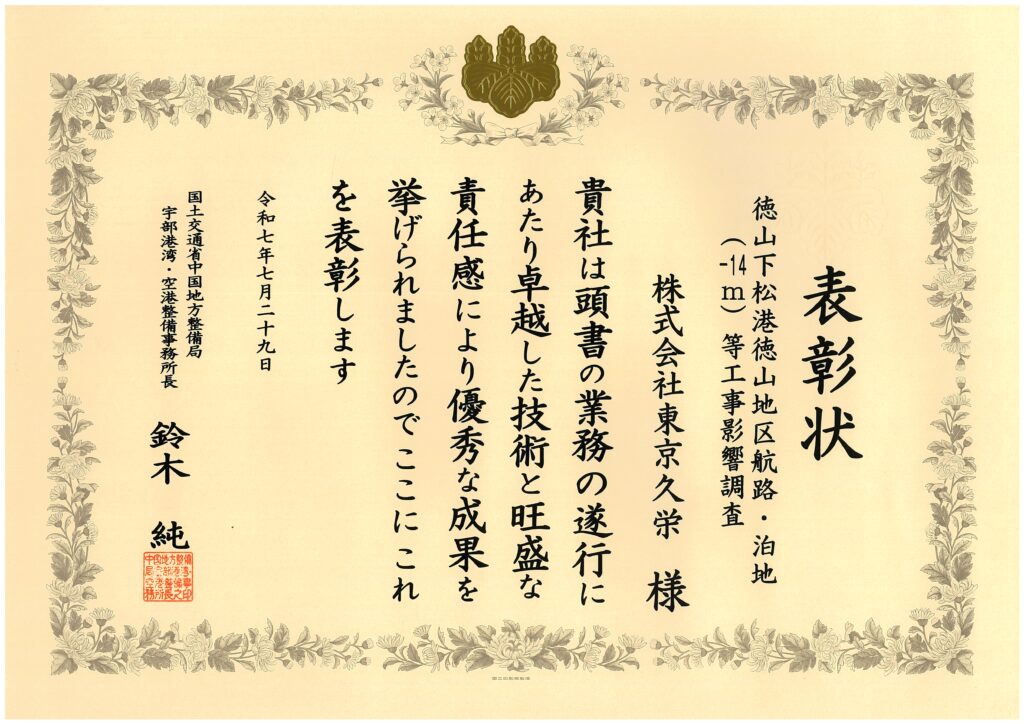 表彰状
徳山下松港徳山地区航路・泊地
（-14m）等工事影響調査
株式会社東京久栄　様
貴社は頭書の業務の遂行に
あたり卓越した技術と旺盛な
責任感により優秀な成果を
挙げられましたのでここにこれ
を表彰します
令和七年七月二十九日
国土交通省中国地方整備局
宇部港湾・空港整備事務所長
鈴木　純